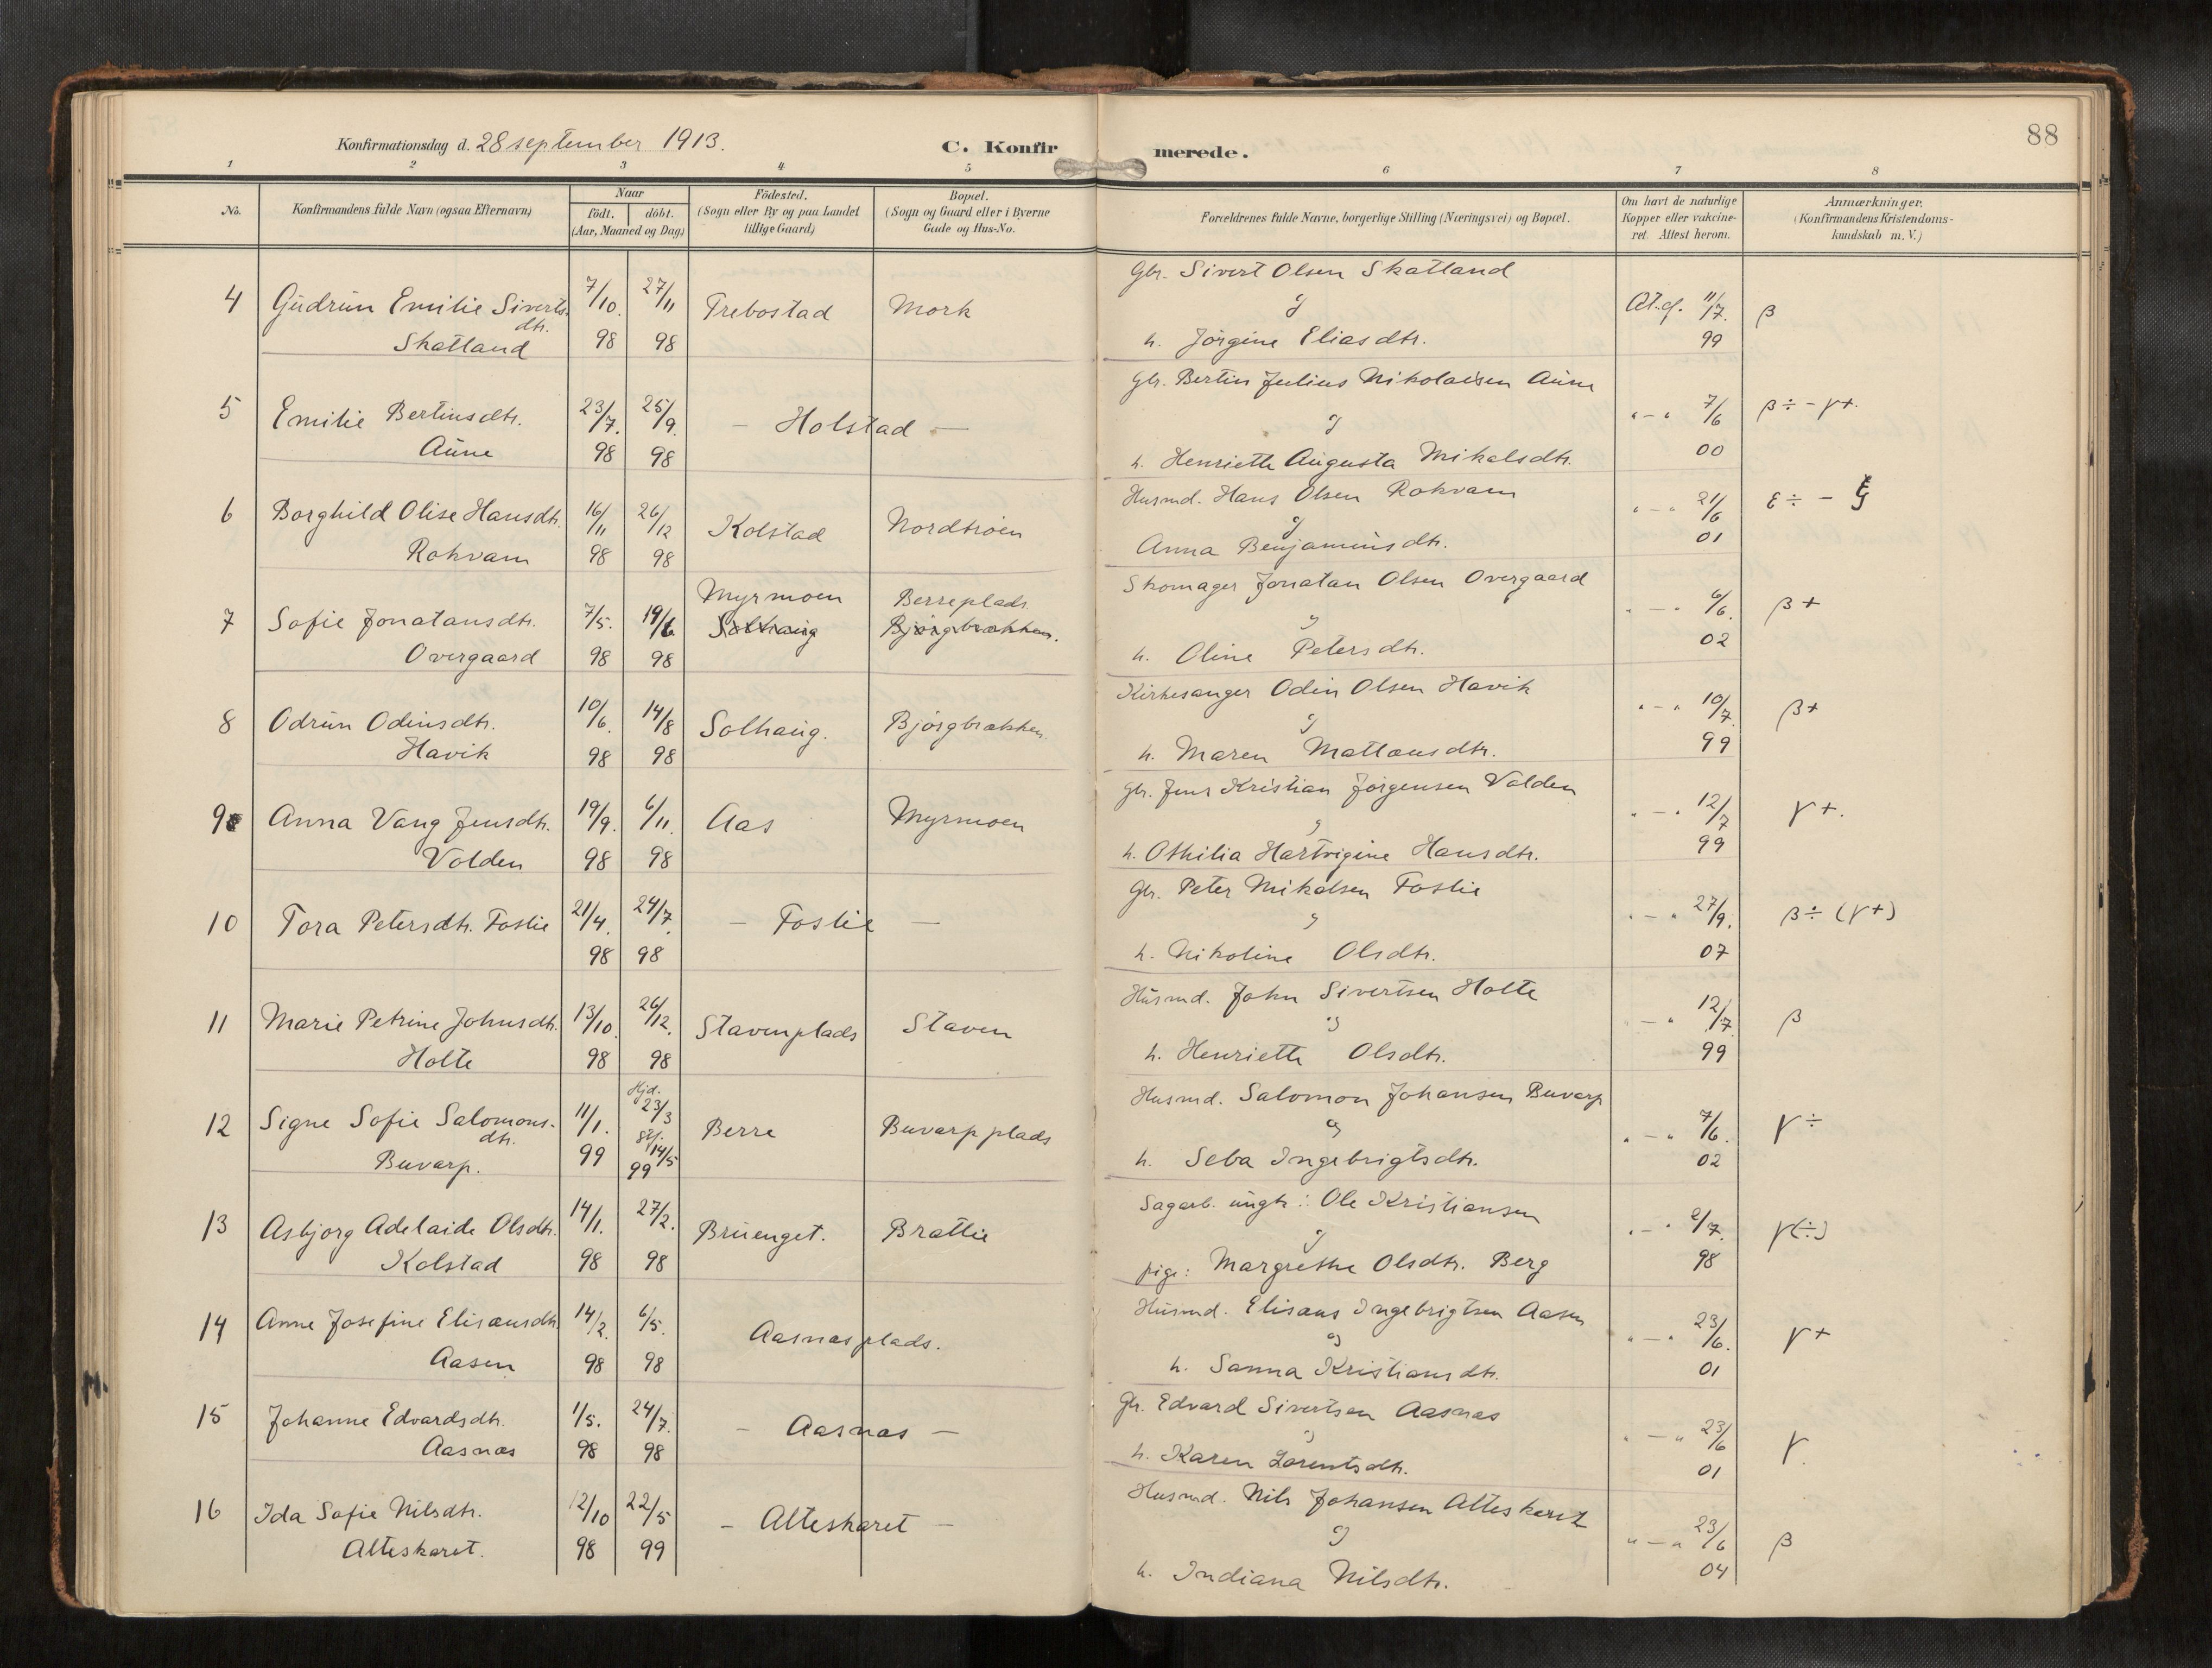 88
Konfirmationsdag d. 28 september 1913.
C. Konfirmerede.
1 2 3 4 5 6 7 8
No.
Konfirmandens fulde Navn (ogsaa Efternavn)
Naar
födt. döbt.
(Aar, Maaned og Dag)
Födested.
(Sogn eller By og paa Landet
tillige Gaard)
Bopæl.
(Sogn og Gaard eller i Byerne
Gade og Hus-No.
Forældrenes fulde Navne, borgerlige Stilling (Næringsvei) og Bopæl.
Om havt de naturlige
Kopper eller vakcine-
ret. Attest herom.
Anmærkninger.
(Konfirmandens Kristendoms-
kundskab m. V.)
4 Gudrun Emilie Siverts-
dtr.
Skatland
7/10. 98
27/11 98
Trebostad
Mork
Gbr. Sivert Olsen Skatland
og
h. Jörgine Eliasdtr.
At. af. 11/7. 99
β
5 Emilie Bertinsdtr.
Aune
23/7. 98
25/9. 98
— Holstad —
Gbr. Bertin Julius Nikolaisen Aune
og
h. Henriette Augusta Mikalsdtr.
" — " 7/6 00
β ÷ - γ+.
6 Borghild Olise Hansdtr.
Rokvam
16/11 98
26/12 98
Kolstad
Nordtröen
Husmd. Hans Olsen Rokvam
og
Anna Benjaminsdtr.
" — " 21/6 01
ε ÷ -
7 Sofie Jonatansdtr.
Overgaard
7/5. 98
19/6 98
Myrmoen
Solhaug
Berreplads
Bjørgbrækken.
Skomager Jonatan Olsen Overgaard
og
h. Oline Petersdtr.
" — " 6/6. 02
β +
8 Odrun Odinsdtr.
Havik
10/6. 98
14/8 98
Solhaug.
Bjørgbrækken.
Kirkesanger Odin Olsen Havik
og
h. Maren Mattæusdtr.
" — " 10/7. 99
β+
9 Anna Vang Jensdtr.
Volden
19/9. 98
6/11. 98
Aas
Myrmoen
Gbr. Jens Kristian Jörgensen Volden
og
h. Othilia Hartvigine Hansdtr.
" — " 12/7 99
γ+.
10 Tora Petersdtr. Foslie
21/4. 98
24/7. 98
— Foslie —
Gbr. Peter Mikalsen Foslie
og
h. Nikoline Olsdtr.
" — " 27/9. 07
β ÷ (γ+)
11 Marie Petrine Johnsdtr.
Holte
13/10. 98
26/12. 98
Stavenplads
Staven
Husmd. John Sivertsen Holte
og
h. Henriette Olsdtr.
" — " 12/7 99
β
12 Signe Sofie Salomons-
dtr.
Buvarp.
11/1. 99
Hjd. 23/3
14/5 99
Berre
Buvarpplads
Husmd. Salomon Johansen Buvarp
og
h. Seba Ingebrigtsdtr.
" — " 7/6. 02
γ ÷
13 Asbjørg Adelaide Olsdtr.
Kolstad
14/1. 98
27/2. 98
Bruenget.
Brattlie
Sagarb. ungk.: Ole Kristiansen
og
pige: Margrethe Olsdtr. Berg
" — " /7. 98
γ(÷)
14 Anne Josefine Elisæusdtr.
Aasen
14/2. 98
6/5. 98
Aasnæsplads.
Husmd. Elisæus Ingebrigtsen Aasen
og
h. Sanna Kristiansdtr.
" — " 23/6. 01
γ+
15 Johanne Edvardsdtr.
Aasnæs
1/5. 98
24/7. 98
— Aasnæs —
Gbr. Edvard Sivertsen Aasnæs
og
h. Karen Lorentsdtr.
" — " 23/6 01
γ.
16 Ida Sofie Nilsdtr.
Alteskaret.
12/10 98
22/5 99
— Alteskaret —
Husmd. Nils Johansen Alteskaret
og
h. Indiana Nilsdtr.
" — " 23/6 04
β